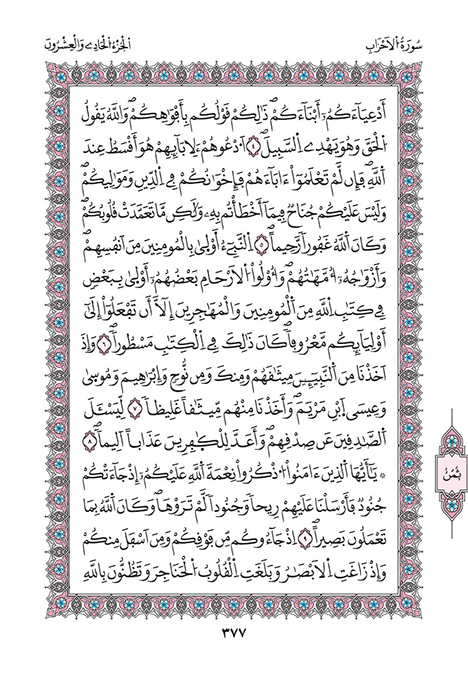 سُورَةُ الْأَحْزَابِ
الْجُزْءُ الْحَادِي وَالْعِشْرُونَ
أَدْعِيَآءَكُمُۥٓ أَبْنَآءَكُمْۖ ذَٰلِكُمْ قَوْلُكُم بِأَفْوَٰهِكُمْۖ وَاللَّهُ يَقُولُ
الْحَقَّ وَهُوَ يَهْدِے السَّبِيلَۖ ٤ اَدْعُوهُمْ لِأٓبَآئِهِمْ هُوَ أَقْسَطُ عِندَ
اَللَّهِۖ فَإِن لَّمْ تَعْلَمُوٓاْ ءَابَآءَهُمْ فَإِخْوَٰنُكُمْ فِے الدِّينِ وَمَوَٰلِيكُمْ
وَلَيْسَ عَلَيْكُمْ جُنَاحٌ فِيمَآ أَخْطَأْتُم بِهِۦ وَلَٰكِن مَّا تَعَمَّدَتْ قُلُوبُكُمْۖ
وَكَانَ اَللَّهُ غَفُوراً رَّحِيماًۖ ٥ اَلنَّبِےٓءُ اَ۬وْلَىٰ بِالْمُومِنِينَ مِنَ اَنفُسِهِمْۖ
وَأَزْوَٰجُهُۥٓ أُمَّهَٰتُهُمْۖ وَأُوْلُواْ اُ۬لَارْحَامِ بَعْضُهُمُۥٓ أَوْلَىٰ بِبَعْضٍ
فِے كِتَٰبِ اِللَّهِ مِنَ اَلْمُومِنِينَ وَالْمُهَٰجِرِينَ إِلَّآ أَن تَفْعَلُوٓاْ إِلَىٰٓ
أَوْلِيَآئِكُم مَّعْرُوفاًۖ كَانَ ذَٰلِكَ فِے الْكِتَٰبِ مَسْطُوراًۖ ٦ وَإِذَ
اَخَذْنَا مِنَ اَلنَّبِيٓـِٕۧنَ مِيثَٰقَهُمْ وَمِنكَ وَمِن نُّوحٍ وَإِبْرَٰهِيمَ وَمُوسَىٰ
وَعِيسَى اَبْنِ مَرْيَمَۖ وَأَخَذْنَا مِنْهُم مِّيثَٰقاً غَلِيظاً ٧ لِّيَسْـَٔلَ
اَلصَّٰدِقِينَ عَن صِدْقِهِمْۖ وَأَعَدَّ لِلْكَٰفِرِينَ عَذَاباً اَلِيماًۖ ٨
۞ يَٰٓأَيُّهَا اَلذِينَ ءَامَنُواْ اُ۟ذْكُرُواْ نِعْمَةَ اَللَّهِ عَلَيْكُمُۥٓ إِذْ جَآءَتْكُمْ
جُنُودٌ فَأَرْسَلْنَا عَلَيْهِمْ رِيحاً وَجُنُوداً لَّمْ تَرَوْهَاۖ وَكَانَ اَللَّهُ بِمَا
تَعْمَلُونَ بَصِيراًۖ ٩ اِذْ جَآءُوكُم مِّن فَوْقِكُمْ وَمِنَ اَسْفَلَ مِنكُمْ
وَإِذْ زَاغَتِ اِلَابْصَٰرُ وَبَلَغَتِ اِلْقُلُوبُ اَلْحَنَاجِرَ وَتَظُنُّونَ بِاللَّهِ
ثُمُنُ
٣٧٧